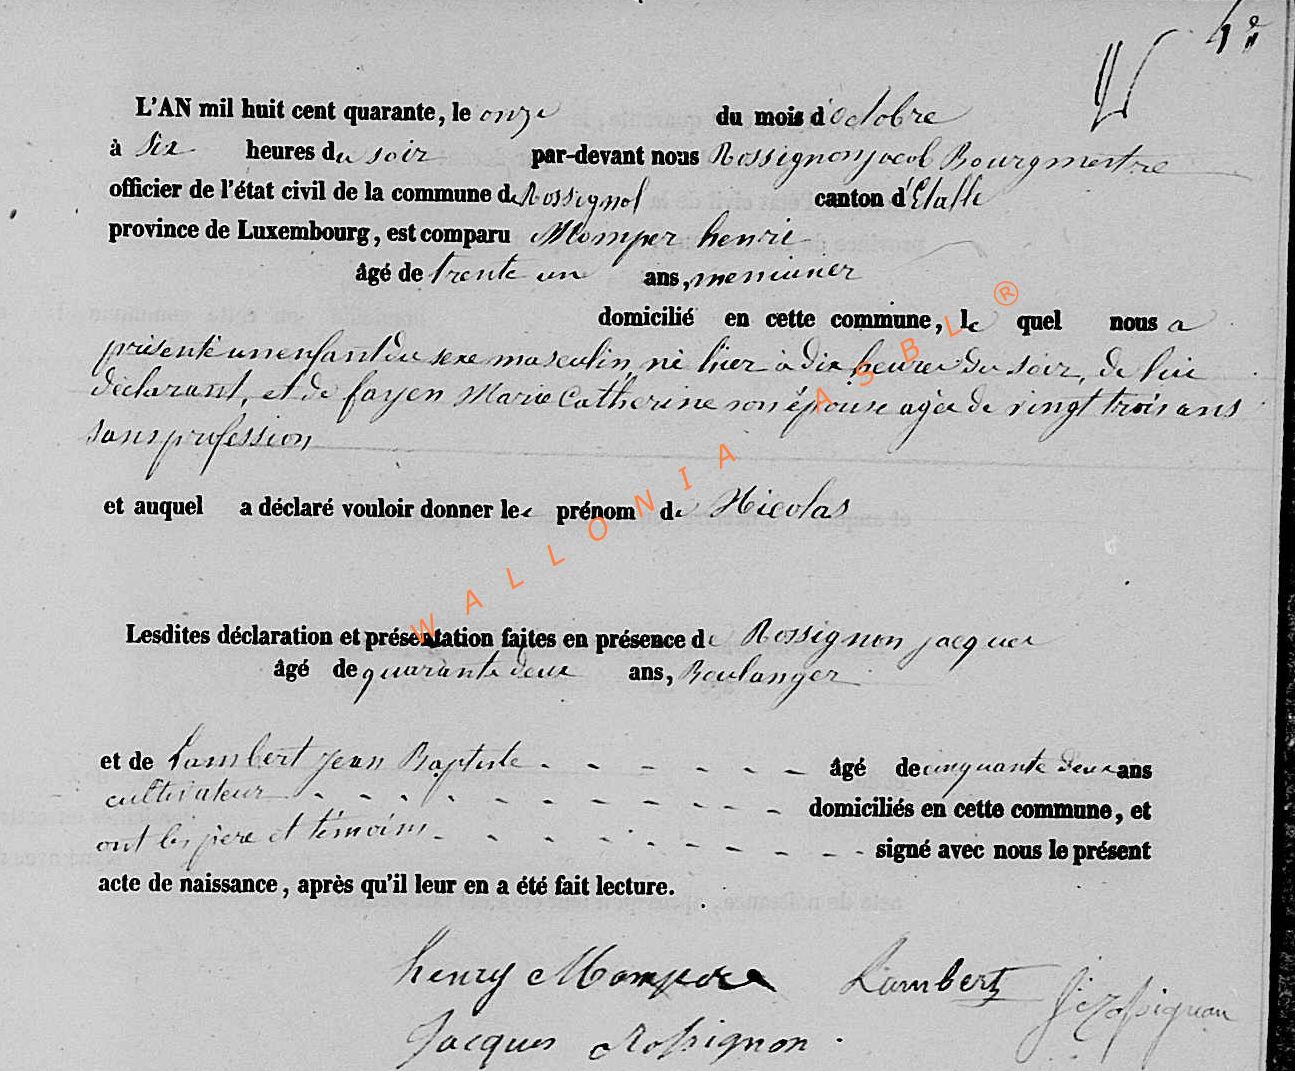 L'AN mil huit cent quarante, le onze du mois d'octobre
à Six heures du soir par-devant nous Rossignon jacob Bourgmestre
officier de l'état civil de la commune de Rossignol canton d'Etalle
province de Luxembourg, est comparu Momper henri
âgé de trente un ans, meniuner
domicilié en cette commune, le quel nous a
présenté un enfant du sexe masculin, né hier à dix heures du soir, de lui
déclarant, et de fayen Marie Catherine son épouse agée de vingt trois ans
sans profession
et auquel a déclaré vouloir donner le prénom de Nicolas
Lesdites déclaration et présentation faites en présence de Rossignon jacques
âgé de quarante deux ans, Boulanger
et de Lambert Jean Baptiste - - - - - - - âgé de cinquante deux ans
cultivateur - - - - - - - - - - - domiciliés en cette commune, et
ont les père et témoins - - - - - - - - - - signé avec nous le présent
acte de naissance, après qu'il leur en a été fait lecture.
henry Momper Lambert J: Rossignon
Jacques Rossignon.
WALLONIA ASBL ®